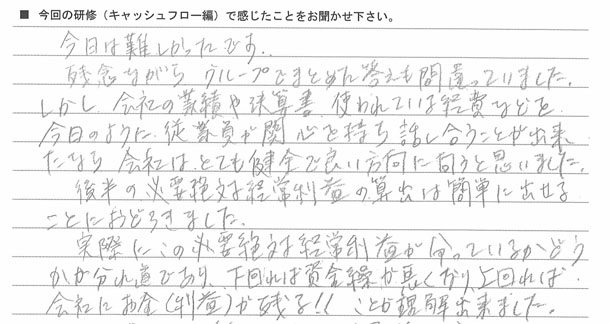 ■ 今回の研修（キャッシュフロー編）で感じたことをお聞かせ下さい。
今日は難しかったです..
残念ながら グループでまとめた答えも間違っていました。
しかし 会社の業績や決算書、使われている経費などを
今日のように、従業員が関心を持ち 話し合うことが出来
たなら 会社は、とても健全で良い方向に向うと思いました。
後半の 必要絶対経常利益の算出は簡単に出せる
ことにおどろきました。
実際に この必要絶対経常利益が分っているかどう
かが分れ道であり、下回れば資金繰が悪くなり、上回れば
会社にお金(利益)が残る!! ことが理解出来ました。